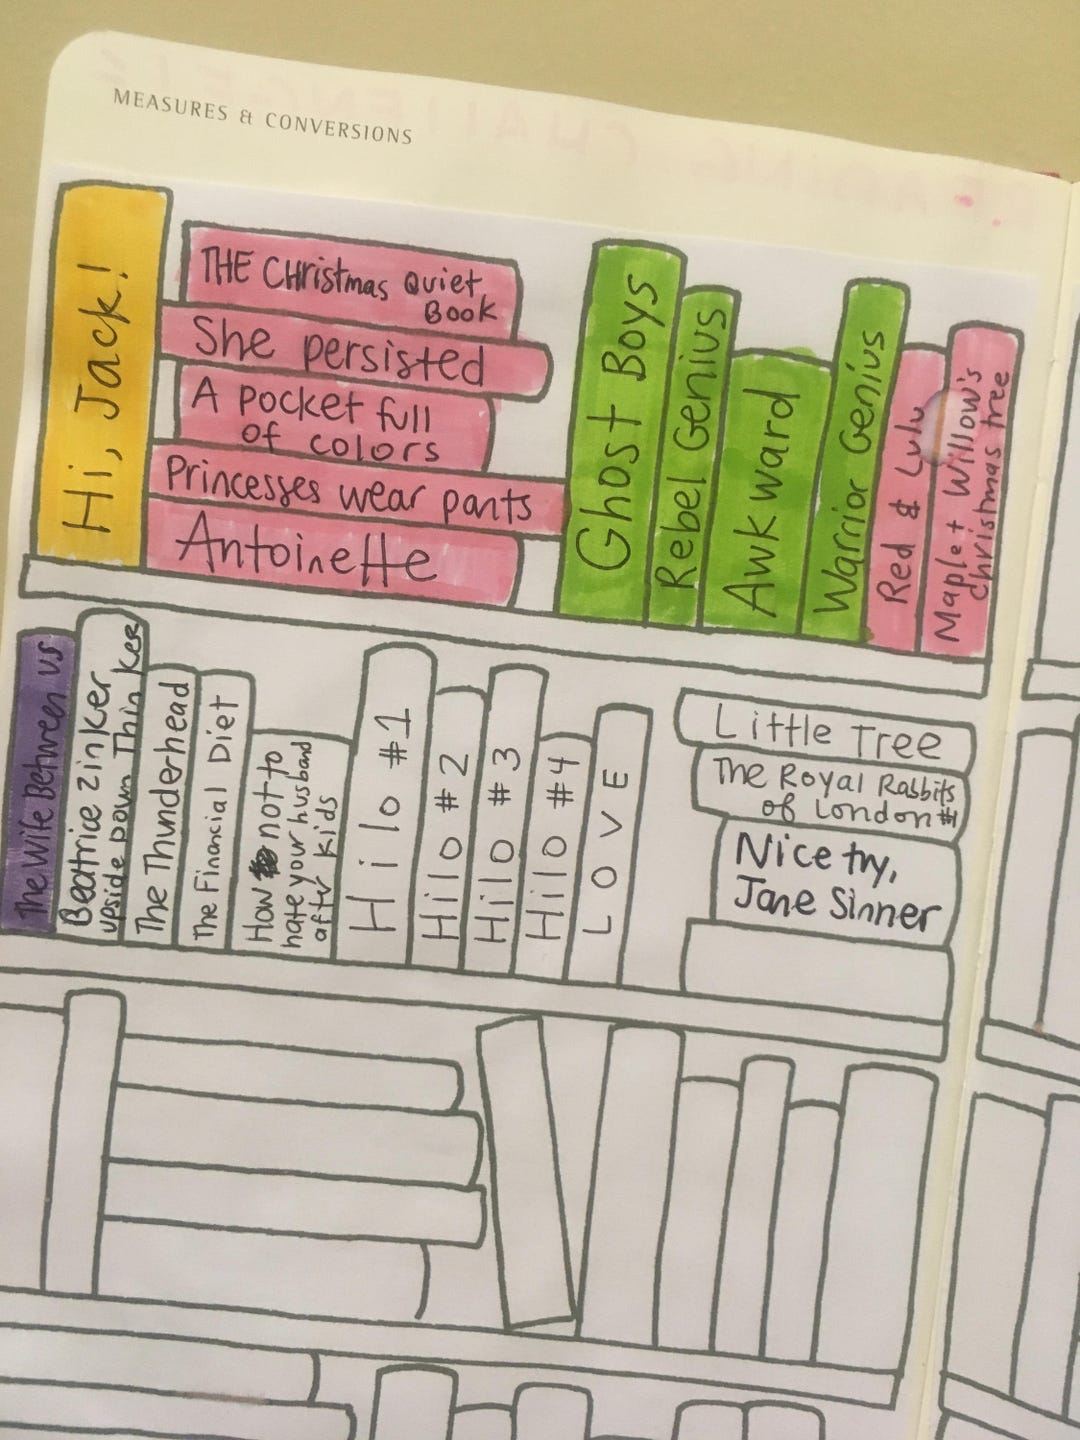 MEASURES & CONVERSIONS
Hi, Jack!
THE CHristmas Quiet
Book
She persisted
A pocket full
of colors
Princesses wear pants
Antoinette
Ghost Boys
Rebel Genius
Awkward
Warrior Genius
Red & Lulu
Maple + Willow's
christmas tree
The Wife Between US
Beatrice Zinker
upside down Thinker
The Thunderhead
The Financial Diet
How not to
hate your husband
after kids
Hilo #1
Hilo #2
Hilo #3
Hilo #4
LOVE
Little Tree
The Royal Rabbits
of London #1
Nice try,
Jane Sinner